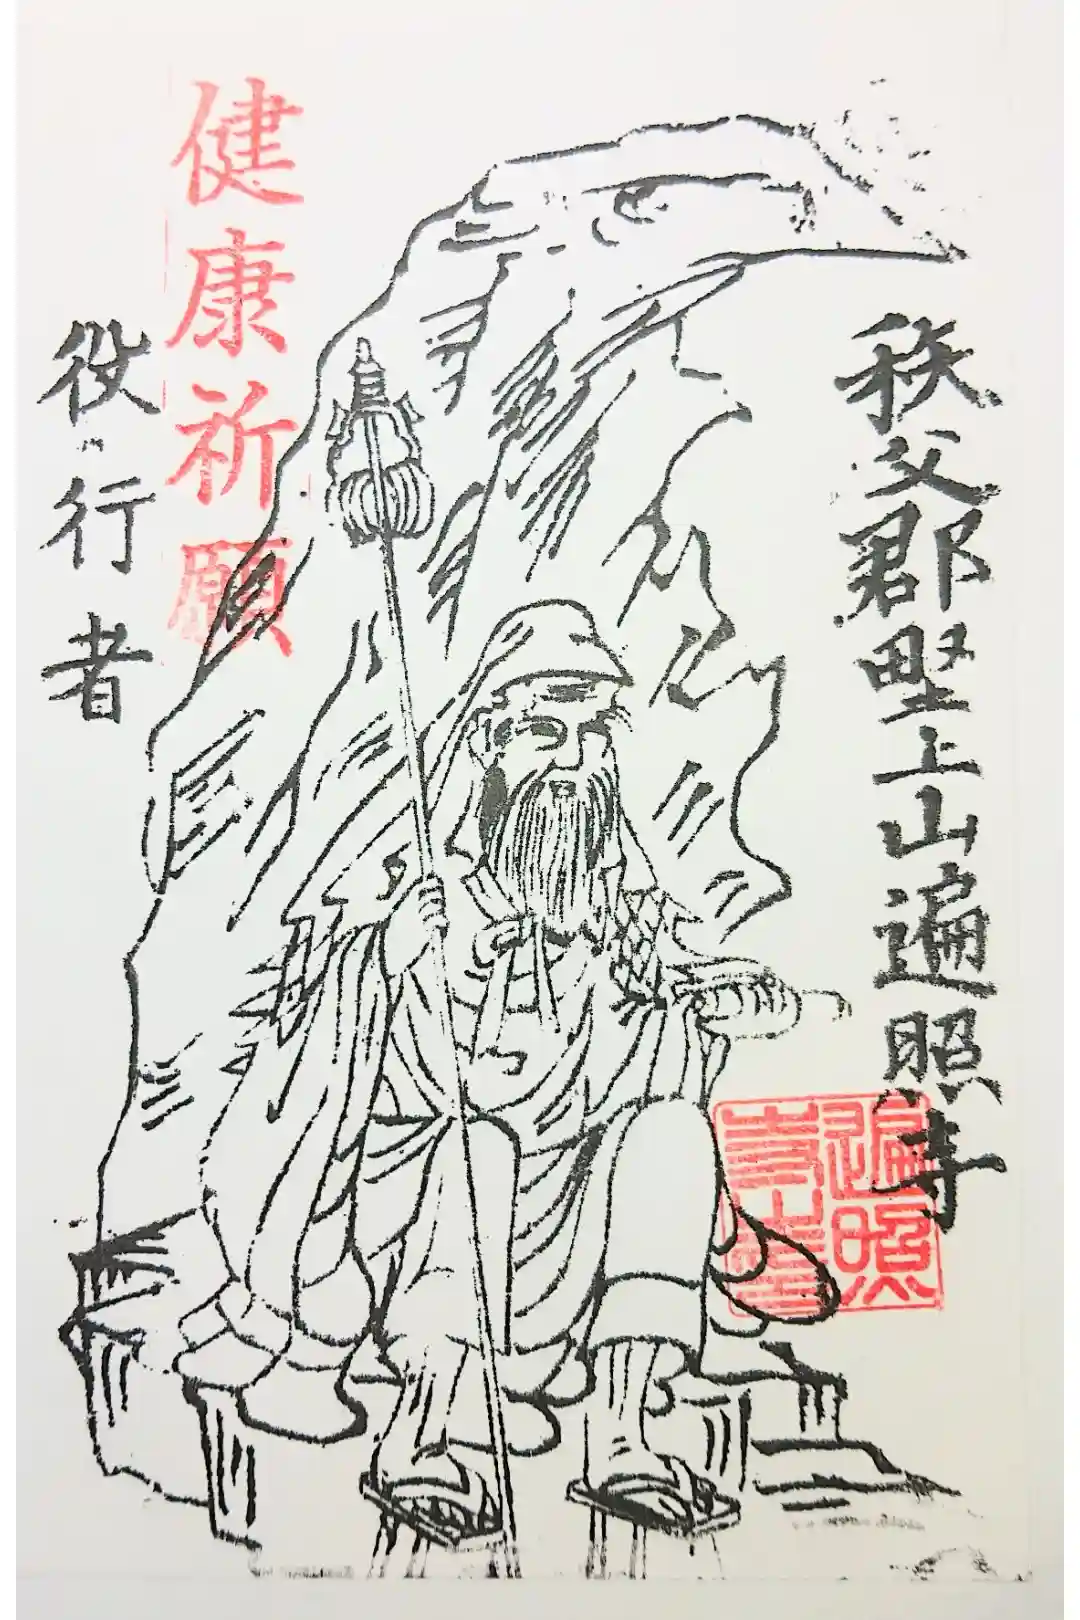 秩父郡野上山遍照寺
健康祈願
役行者
遍照
寺之章